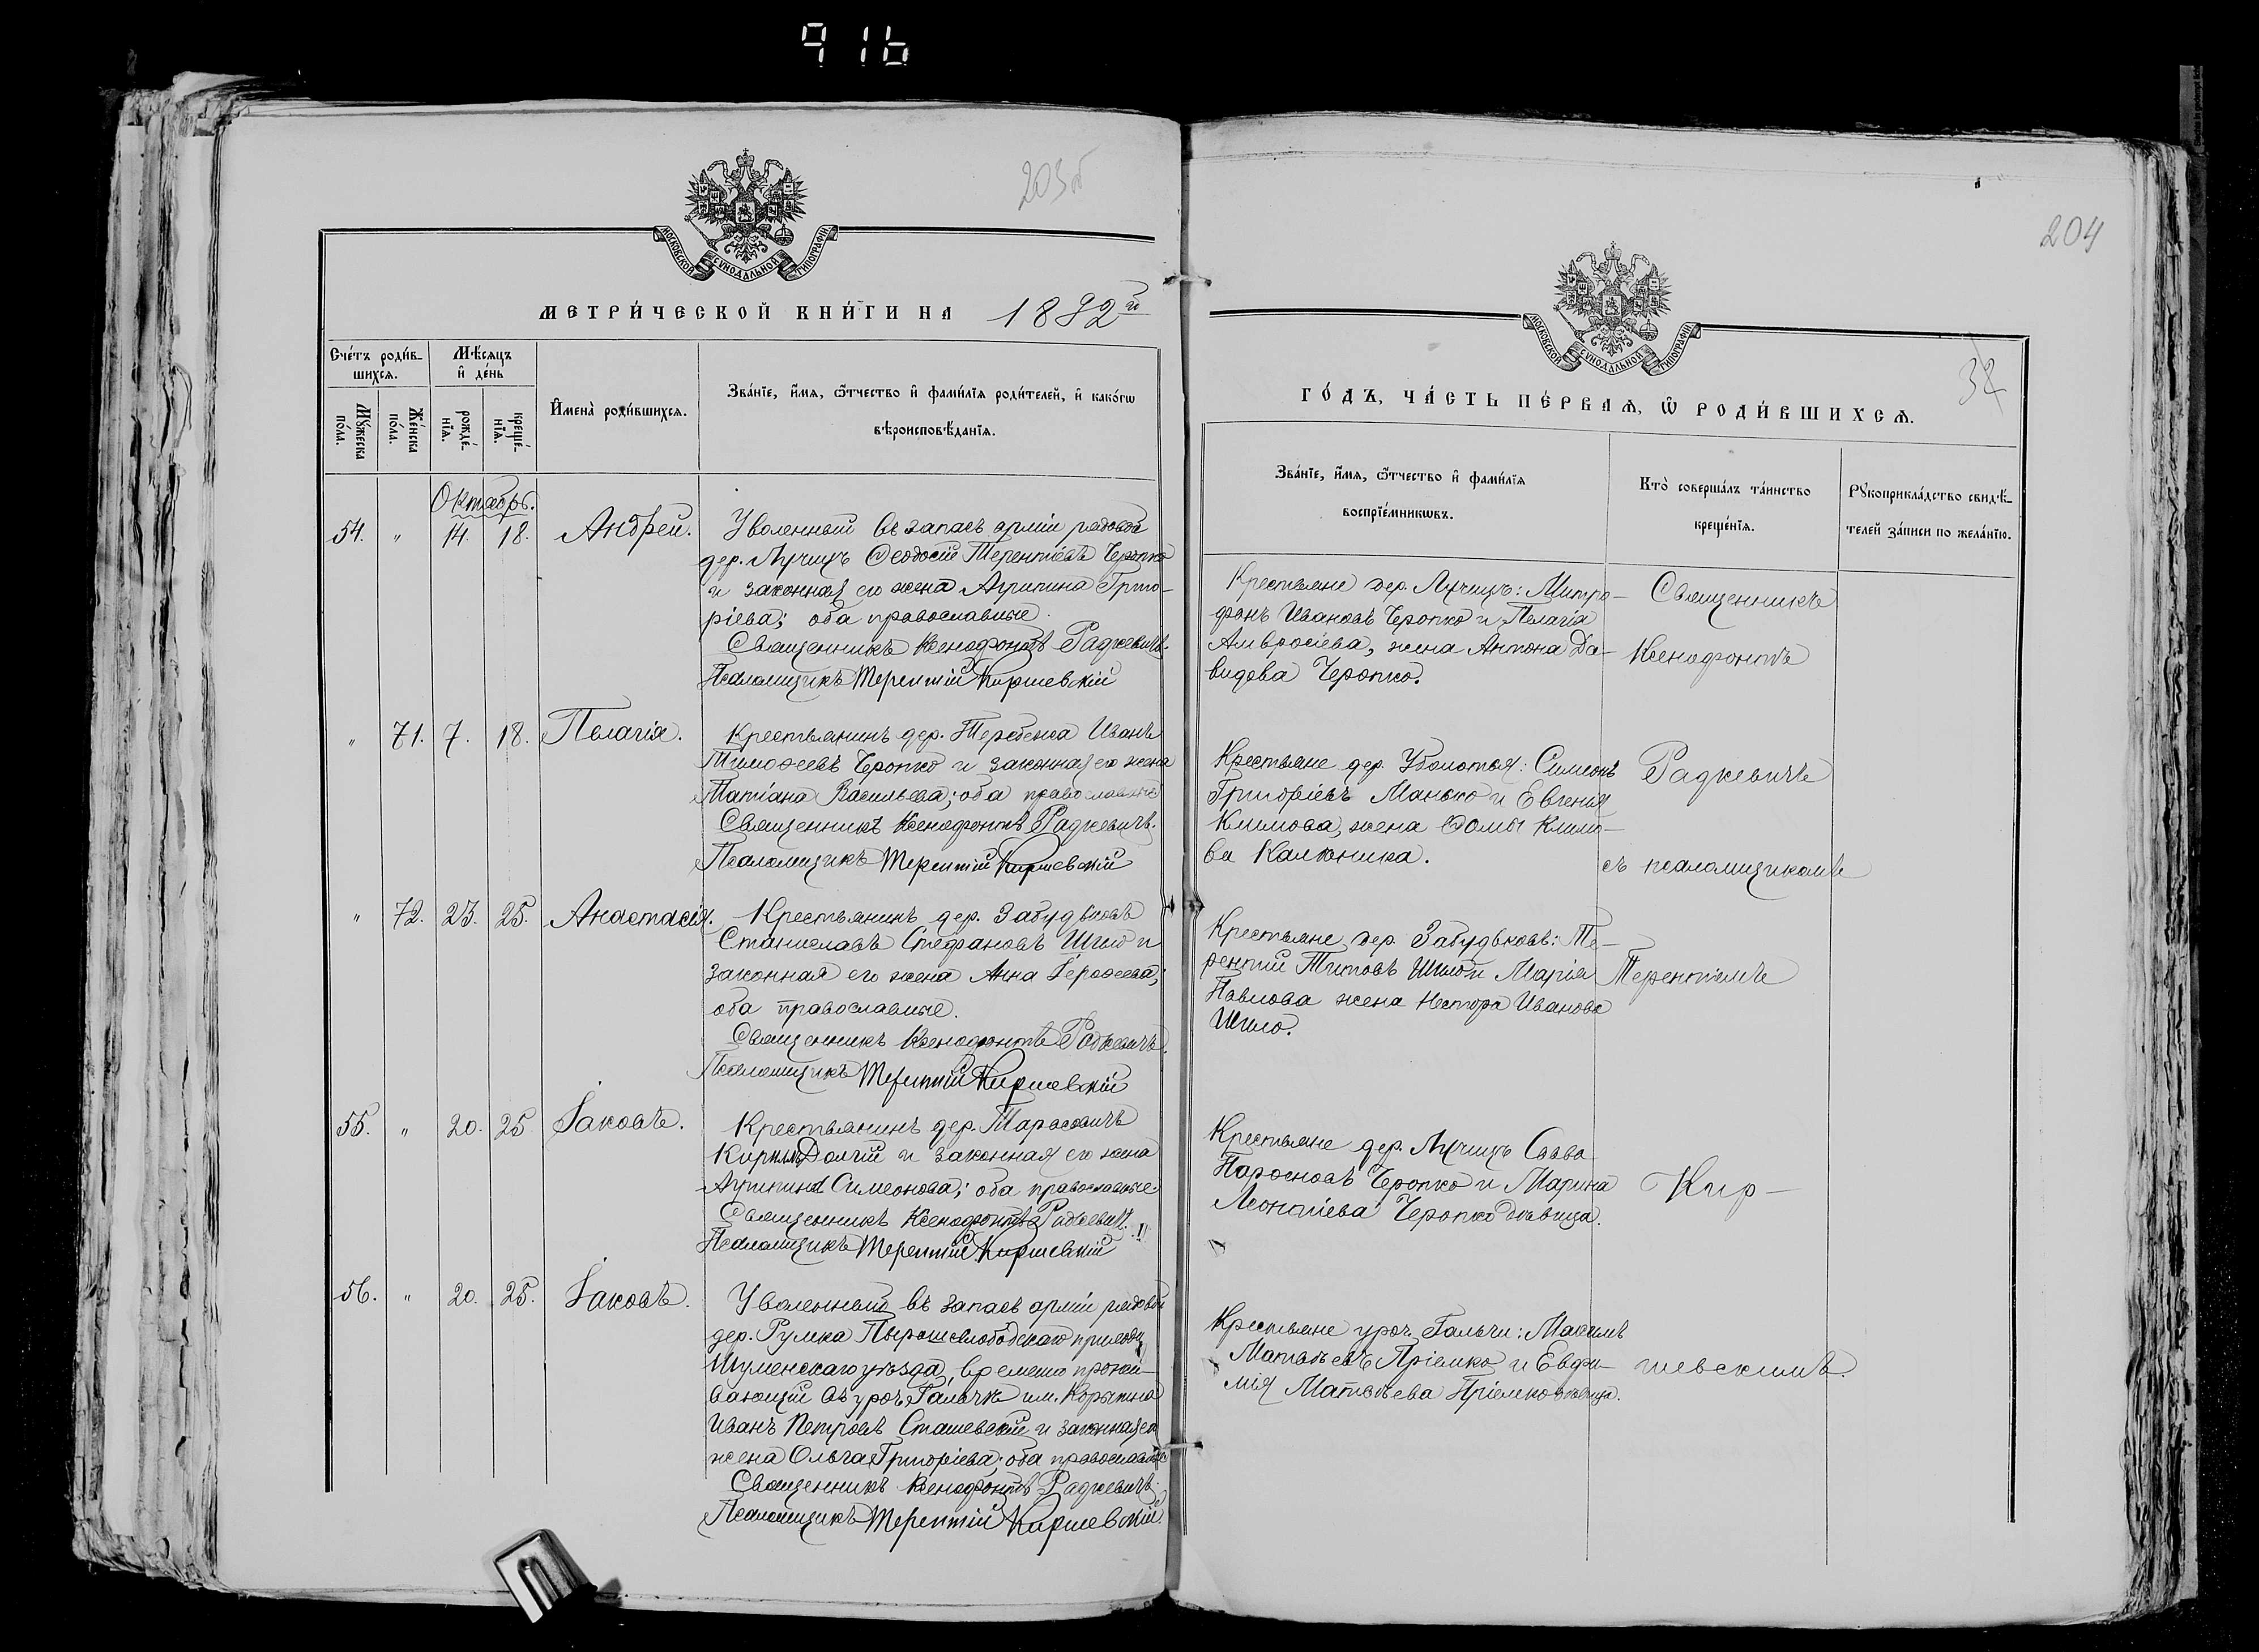 916
203об
МОСКОВСКОЙ СѴНОДАЛЬНОЙ ТИПОГРАФІИ
МЕТРИ́ЧЕСКОЙ КНИ́ГИ НА 1892й
Сче́тъ роди́в-
шихсѧ.
Мꙋ́жеска
пола.
Же́нска
по́ла.
Мѣ́сѧцъ
и҆ де́нь
рожде́-
нїѧ.
креще́-
нїѧ.
И҆мена̀ роди́вшихсѧ.
Зва́нїе, и҆́мѧ, ѻ҆́тчество и҆ фами́лїѧ роди́телей, и҆ како́гѡ
вѣроисповѣ́данїѧ.
Октябрь.
54. " 14. 18. Андрей.
Уволенный въ запасъ арміи рядовой
дер. Лучицъ Ѳеодосій Терентіевъ Черопко
и законная его жена Агрипина Григо-
ріева; оба православные.
Священникъ Ксенофонтъ Радкевичъ.
Псаломщикъ Терентій Киршевскій
" 71. 7. 18. Пелагія.
Крестьянинъ дер. Теребенка Иванъ
Тимоѳеевъ Черопко и законная его жена
Татіана Васильева; оба православные
Священникъ Ксенофонтъ Радкевичъ.
Псаломщикъ Терентій Киршевскій
" 72. 23. 25. Анастасія.
Крестьянинъ дер. Забудьковъ
Станиславъ Стефановъ Шило и
законная его жена Анна Іероѳеева;
оба православные.
Священникъ Ксенофонтъ Радкевичъ.
Псаломщикъ Терентій Киршевскій
55. " 20. 25. Іаковъ.
Крестьянинъ дер. Тарасовичъ
Кириллъ Долгій и законная его жена
Агрипина Симеонова; оба православные.
Священникъ Ксенофонтъ Радкевичъ.
Псаломщикъ Терентій Киршевскій
56. " 20. 25. Іаковъ.
Уволенный въ запасъ арміи рядовой
дер. Румка Пырашеслободскаго прихода
Игуменскаго уѣзда, временно прожи-
вающій въ уроч. Гальчѣ им.
Иванъ Петровъ Сташевскій и законная его
жена Ольга Григоріева; оба православные
Священникъ Ксенофонтъ Радкевичъ.
Псаломщикъ Терентій Киршевскій
204
МОСКОВСКОЙ СѴНОДАЛЬНОЙ ТИПОГРАФІИ
ГО́ДЪ, ЧА́СТЬ ПЕ́РВАѦ, Ѡ҆ РОДИ́ВШИХСѦ.
Зва́нїе, и҆́мѧ, ѻ҆́тчество и҆ фами́лїѧ
воспрїе́мникѡвъ.
Кто̀ соверша́лъ та́инство
креще́нїѧ.
Рꙋкоприкла́дство свидѣ́-
телей за́писи по жела́нїю.
Крестьяне дер. Лучицъ: Митро-
фанъ Ивановъ Черопко и Пелагія
Амвросіева, жена Антона Да-
видова Черопко.
Священникъ
Ксенофонтъ
Крестьяне дер. Уболотья: Симеонъ
Григоріевъ Манько и Евгенія
Климова, жена Ѳомы Климо-
ва Калюника.
Радкевичъ
съ псаломщикомъ
Крестьяне дер. Забудьковъ: Те-
рентій Титовъ Шило и Марія
Павлова жена Нестора Иванова
Шило.
Терентіемъ
Крестьяне дер. Лучицъ Савва
Черопко и Марина
Леонтіева Черопко дѣвица.
Кир-
Крестьяне уроч. Гальчи: Максимъ
Матвѣевъ Пріемко и Евфи-
мія Матвѣева Пріемко дѣвица.
шевскимъ.